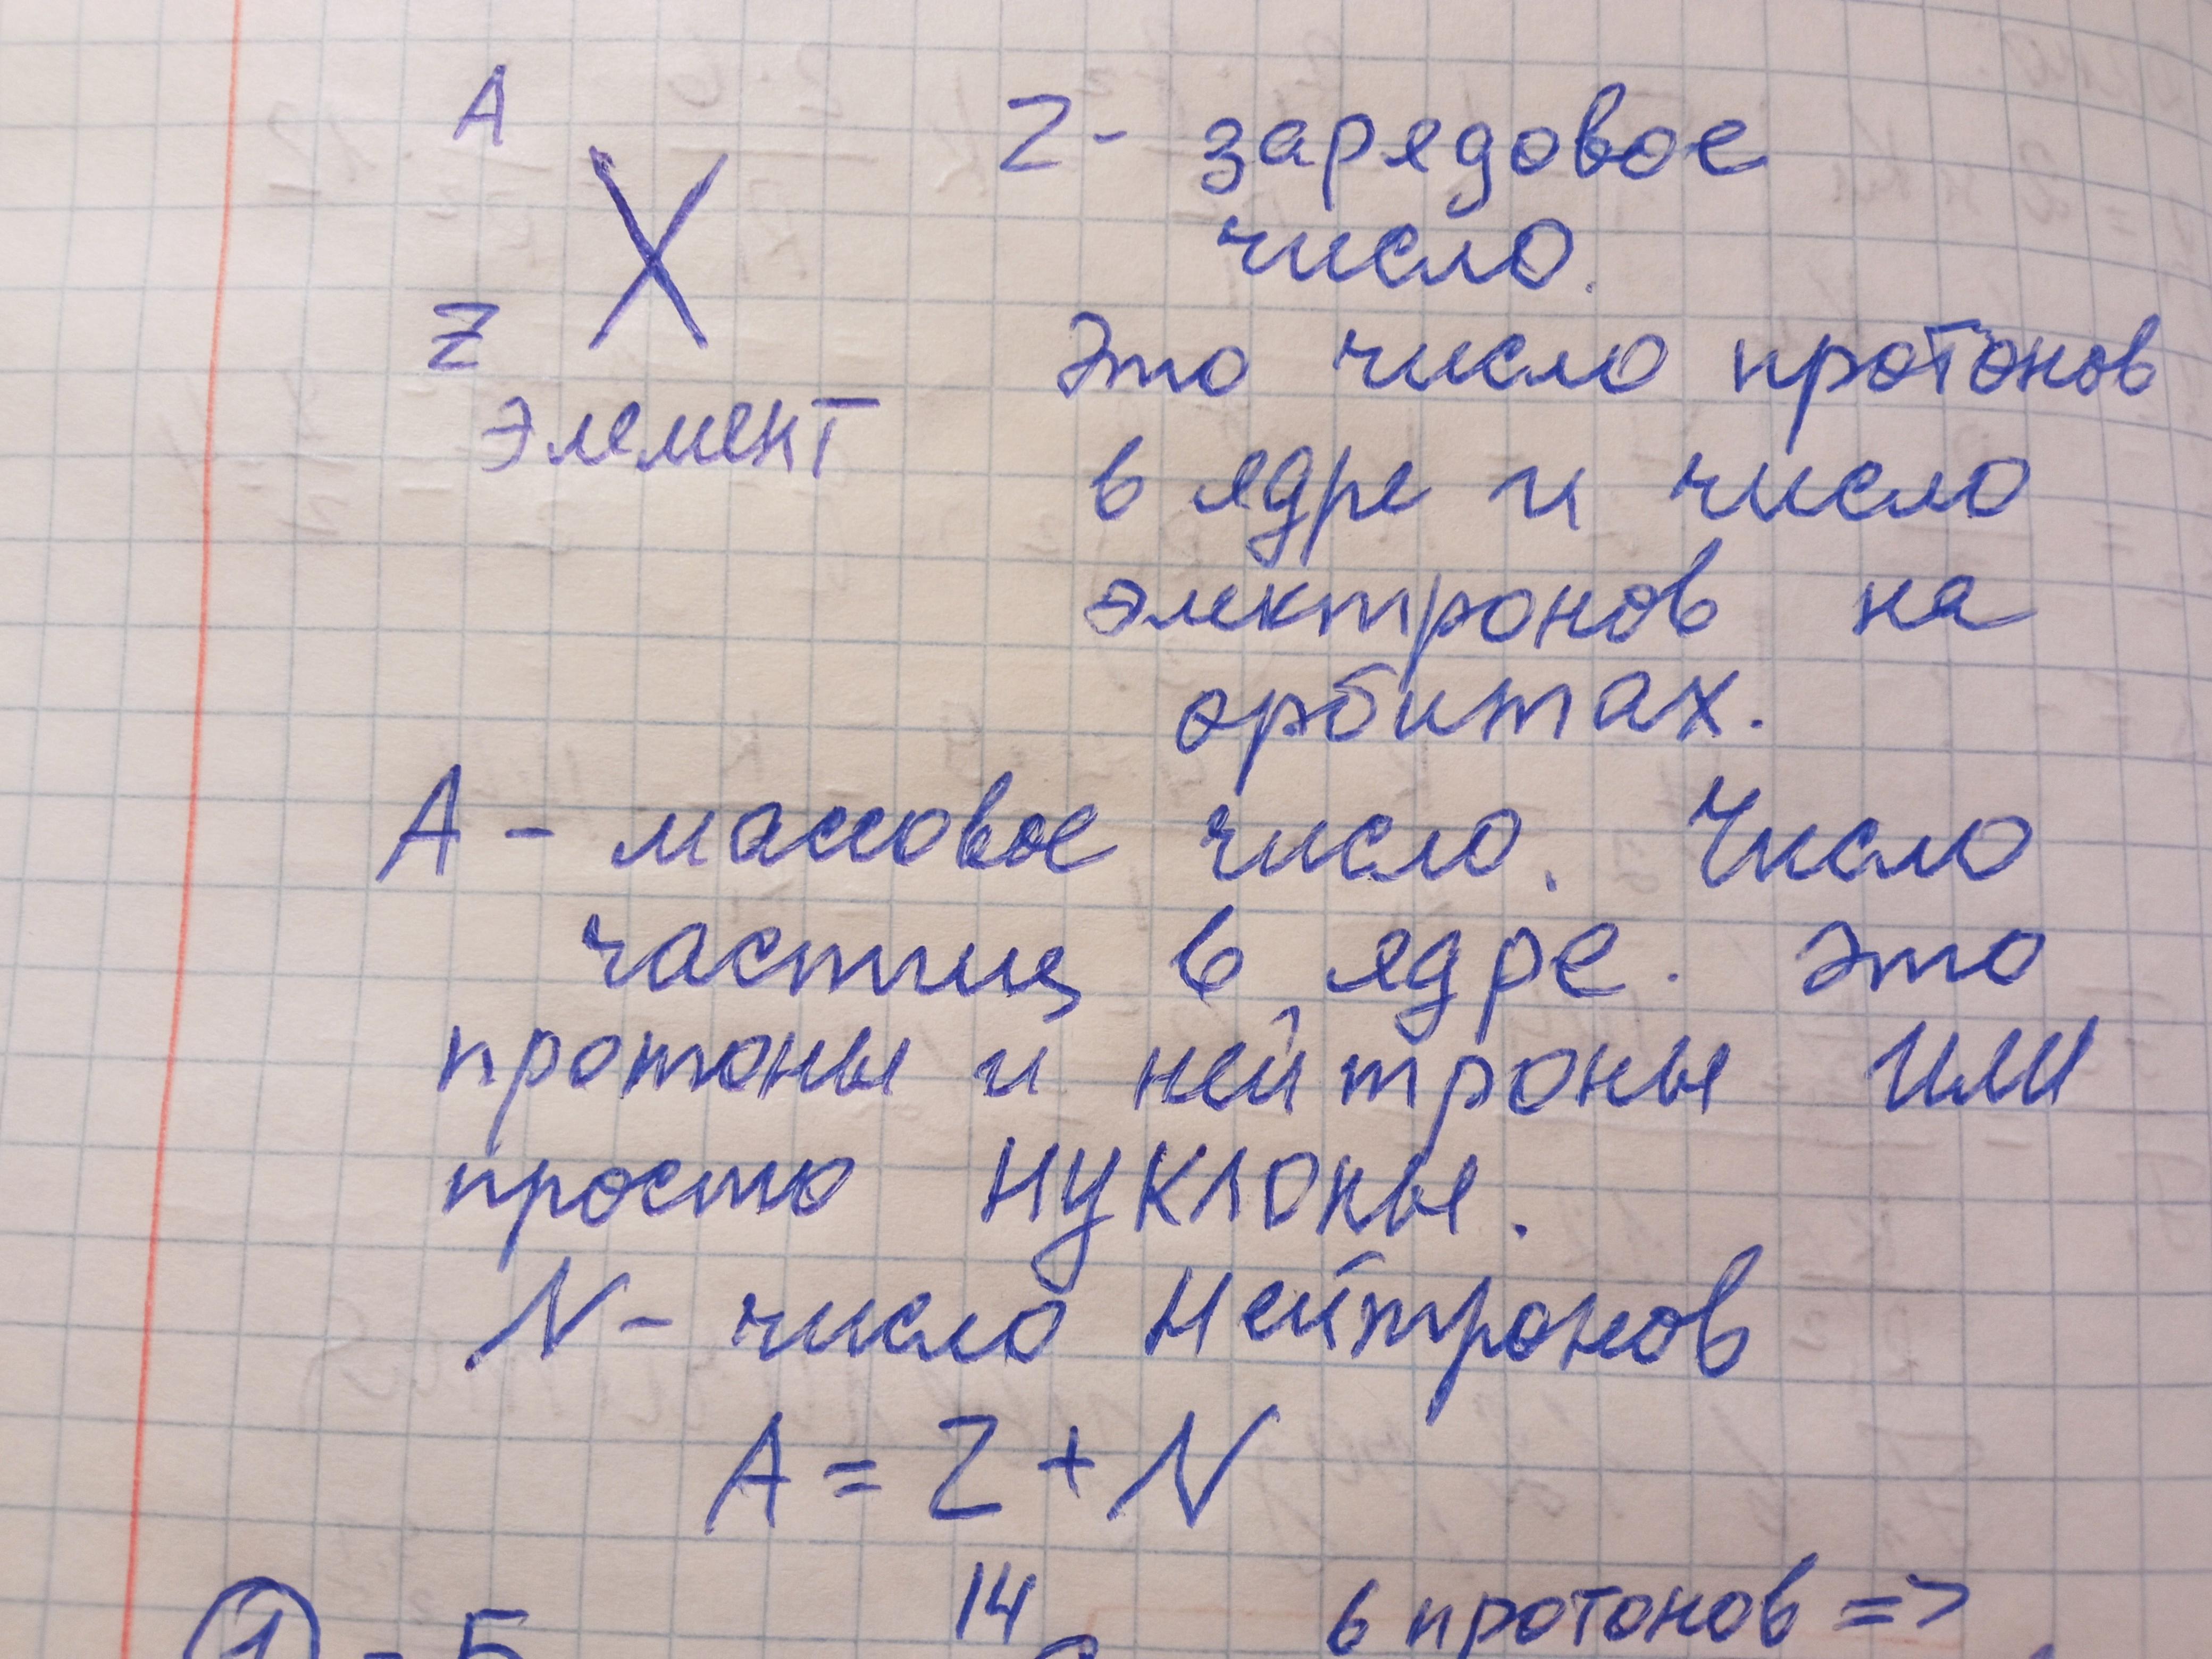 A
X
Z
элемент
Z - зарядовое
число.
Это число протонов
в ядре и число
электронов на
орбитах.
A - массовое число. Число
частиц в ядре. Это
протоны и нейтроны или
просто нуклоны.
N - число нейтронов
A = Z + N
14
6 протонов =>
① - 5